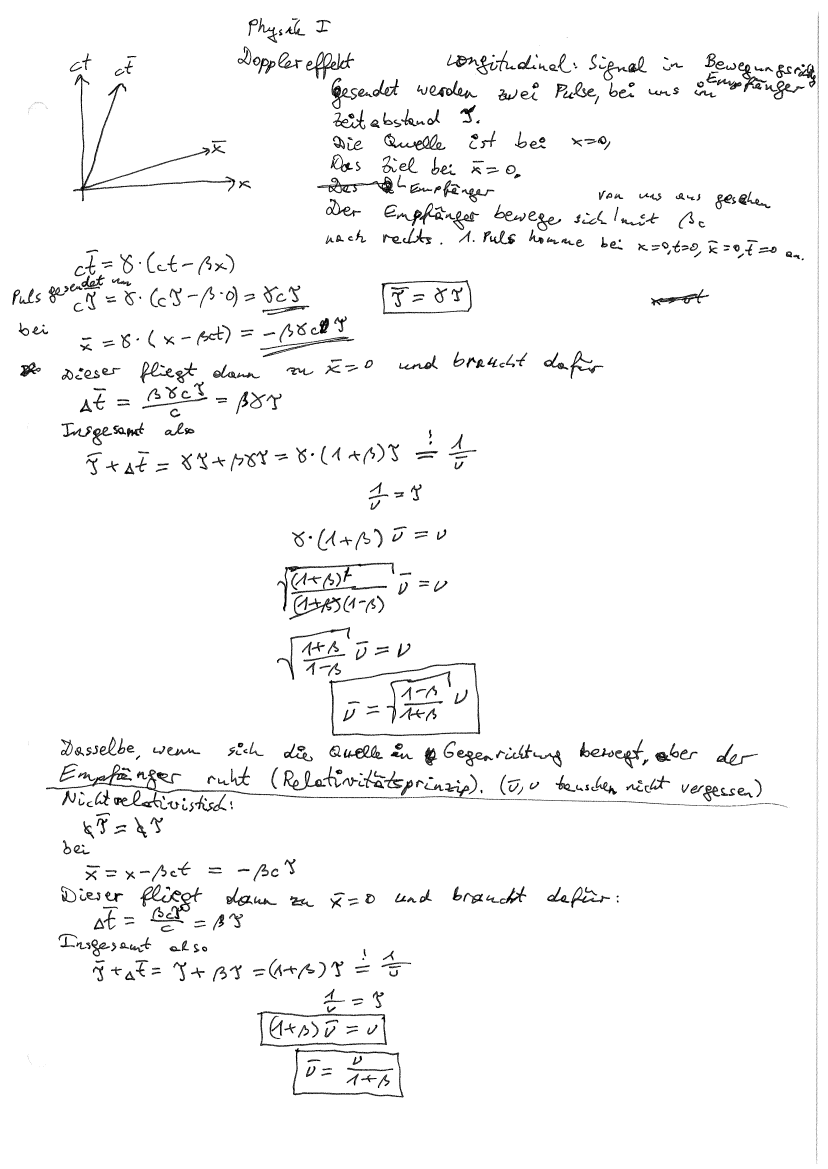 Physik I
Dopplereffekt
Longitudinal: Signal in Bewegungsrichtg Empfänger
Gesendet werden zwei Pulse, bei uns im
Zeitabstand τ.
Die Quelle ist bei x=0,
Das Ziel bei x̄=0.
Empfänger
von uns aus gesehen
Der Empfänger bewege sich mit βc
nach rechts. 1. Puls komme bei x=0,t=0, x̄=0,t̄=0 an.
ct
ct̄
x̄
x
ct̄ = γ·(ct-βx)
Puls gesendet um
cτ̄ = γ·(cτ-β·0) = γcτ
τ̄ = γτ
bei
x̄ = γ·(x-βct) = -βγcτ
Dieser fliegt dann zu x̄=0 und braucht dafür
Δt̄ = βγcτ/c = βγτ
Insgesamt also
τ̄+Δt̄ = γτ+βγτ = γ·(1+β)τ =! 1/ν̄
1/ν = τ
γ·(1+β) ν̄ = ν
√((1+β)²/((1+β)(1-β))) ν̄ = ν
√((1+β)/(1-β)) ν̄ = ν
ν̄ = √((1-β)/(1+β)) ν
Dasselbe, wenn sich die Quelle in Gegenrichtung bewegt, aber der
Empfänger ruht (Relativitätsprinzip). (ν̄,ν tauschen nicht vergessen)
Nichtrelativistisch:
τ̄ = τ
bei
x̄ = x-βct = -βcτ
Dieser fliegt dann zu x̄=0 und braucht dafür:
Δt̄ = βcτ/c = βτ
Insgesamt also
τ̄+Δt̄ = τ+βτ = (1+β)τ =! 1/ν̄
1/ν = τ
(1+β)ν̄ = ν
ν̄ = ν/(1+β)